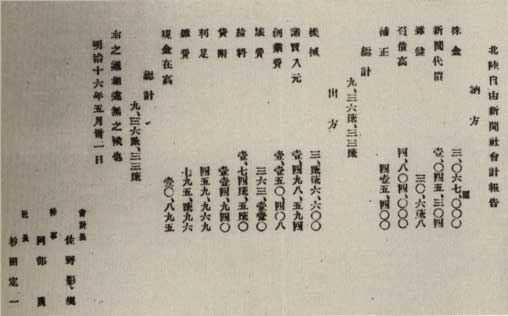 北陸自由新聞社會計報告
納方
株金 三、〇六七、〇〇〇
新聞代價 壹、〇四五、三〇四
雜益 三〇、六漆八
借高 四、八〇四、〇〇〇
補正 四壹五、四〇〇
總計
九、三六漆、三三漆
出方
機械 三、漆漆六、六〇〇
諸買入元 壹、四九八、五四〇
創業費 壹、壹五〇、四〇八
旅費 三六三、壹壹〇
給料 壹、七四漆、五〇〇
貸附 壹壹四、九四〇
利足 四五九、九六九
雜費 七九五、漆九六
現金在高 壹〇、八九五
總計
九、三六漆、三三漆
右之通相違無之候也
明治十六年五月卅一日
會計長 佐野
幹事 阿部
社長 杉田定一